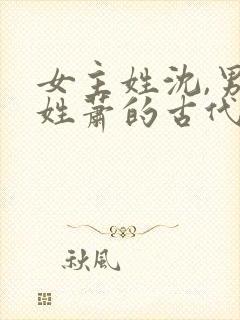 女主姓沈,男
姓萧的古代
秋风